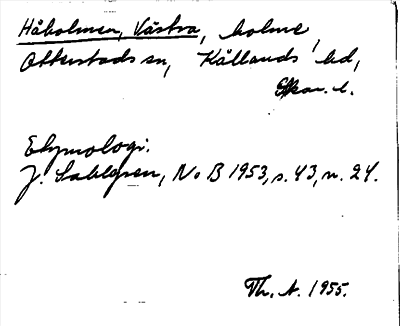 Håholmen, Västra, holme
Otterstads sn, Kållands hd,
Skar. l.
Etymologi.
J. Sahlgren, No B 1953, s. 43, n. 24.
Th. A. 1955.